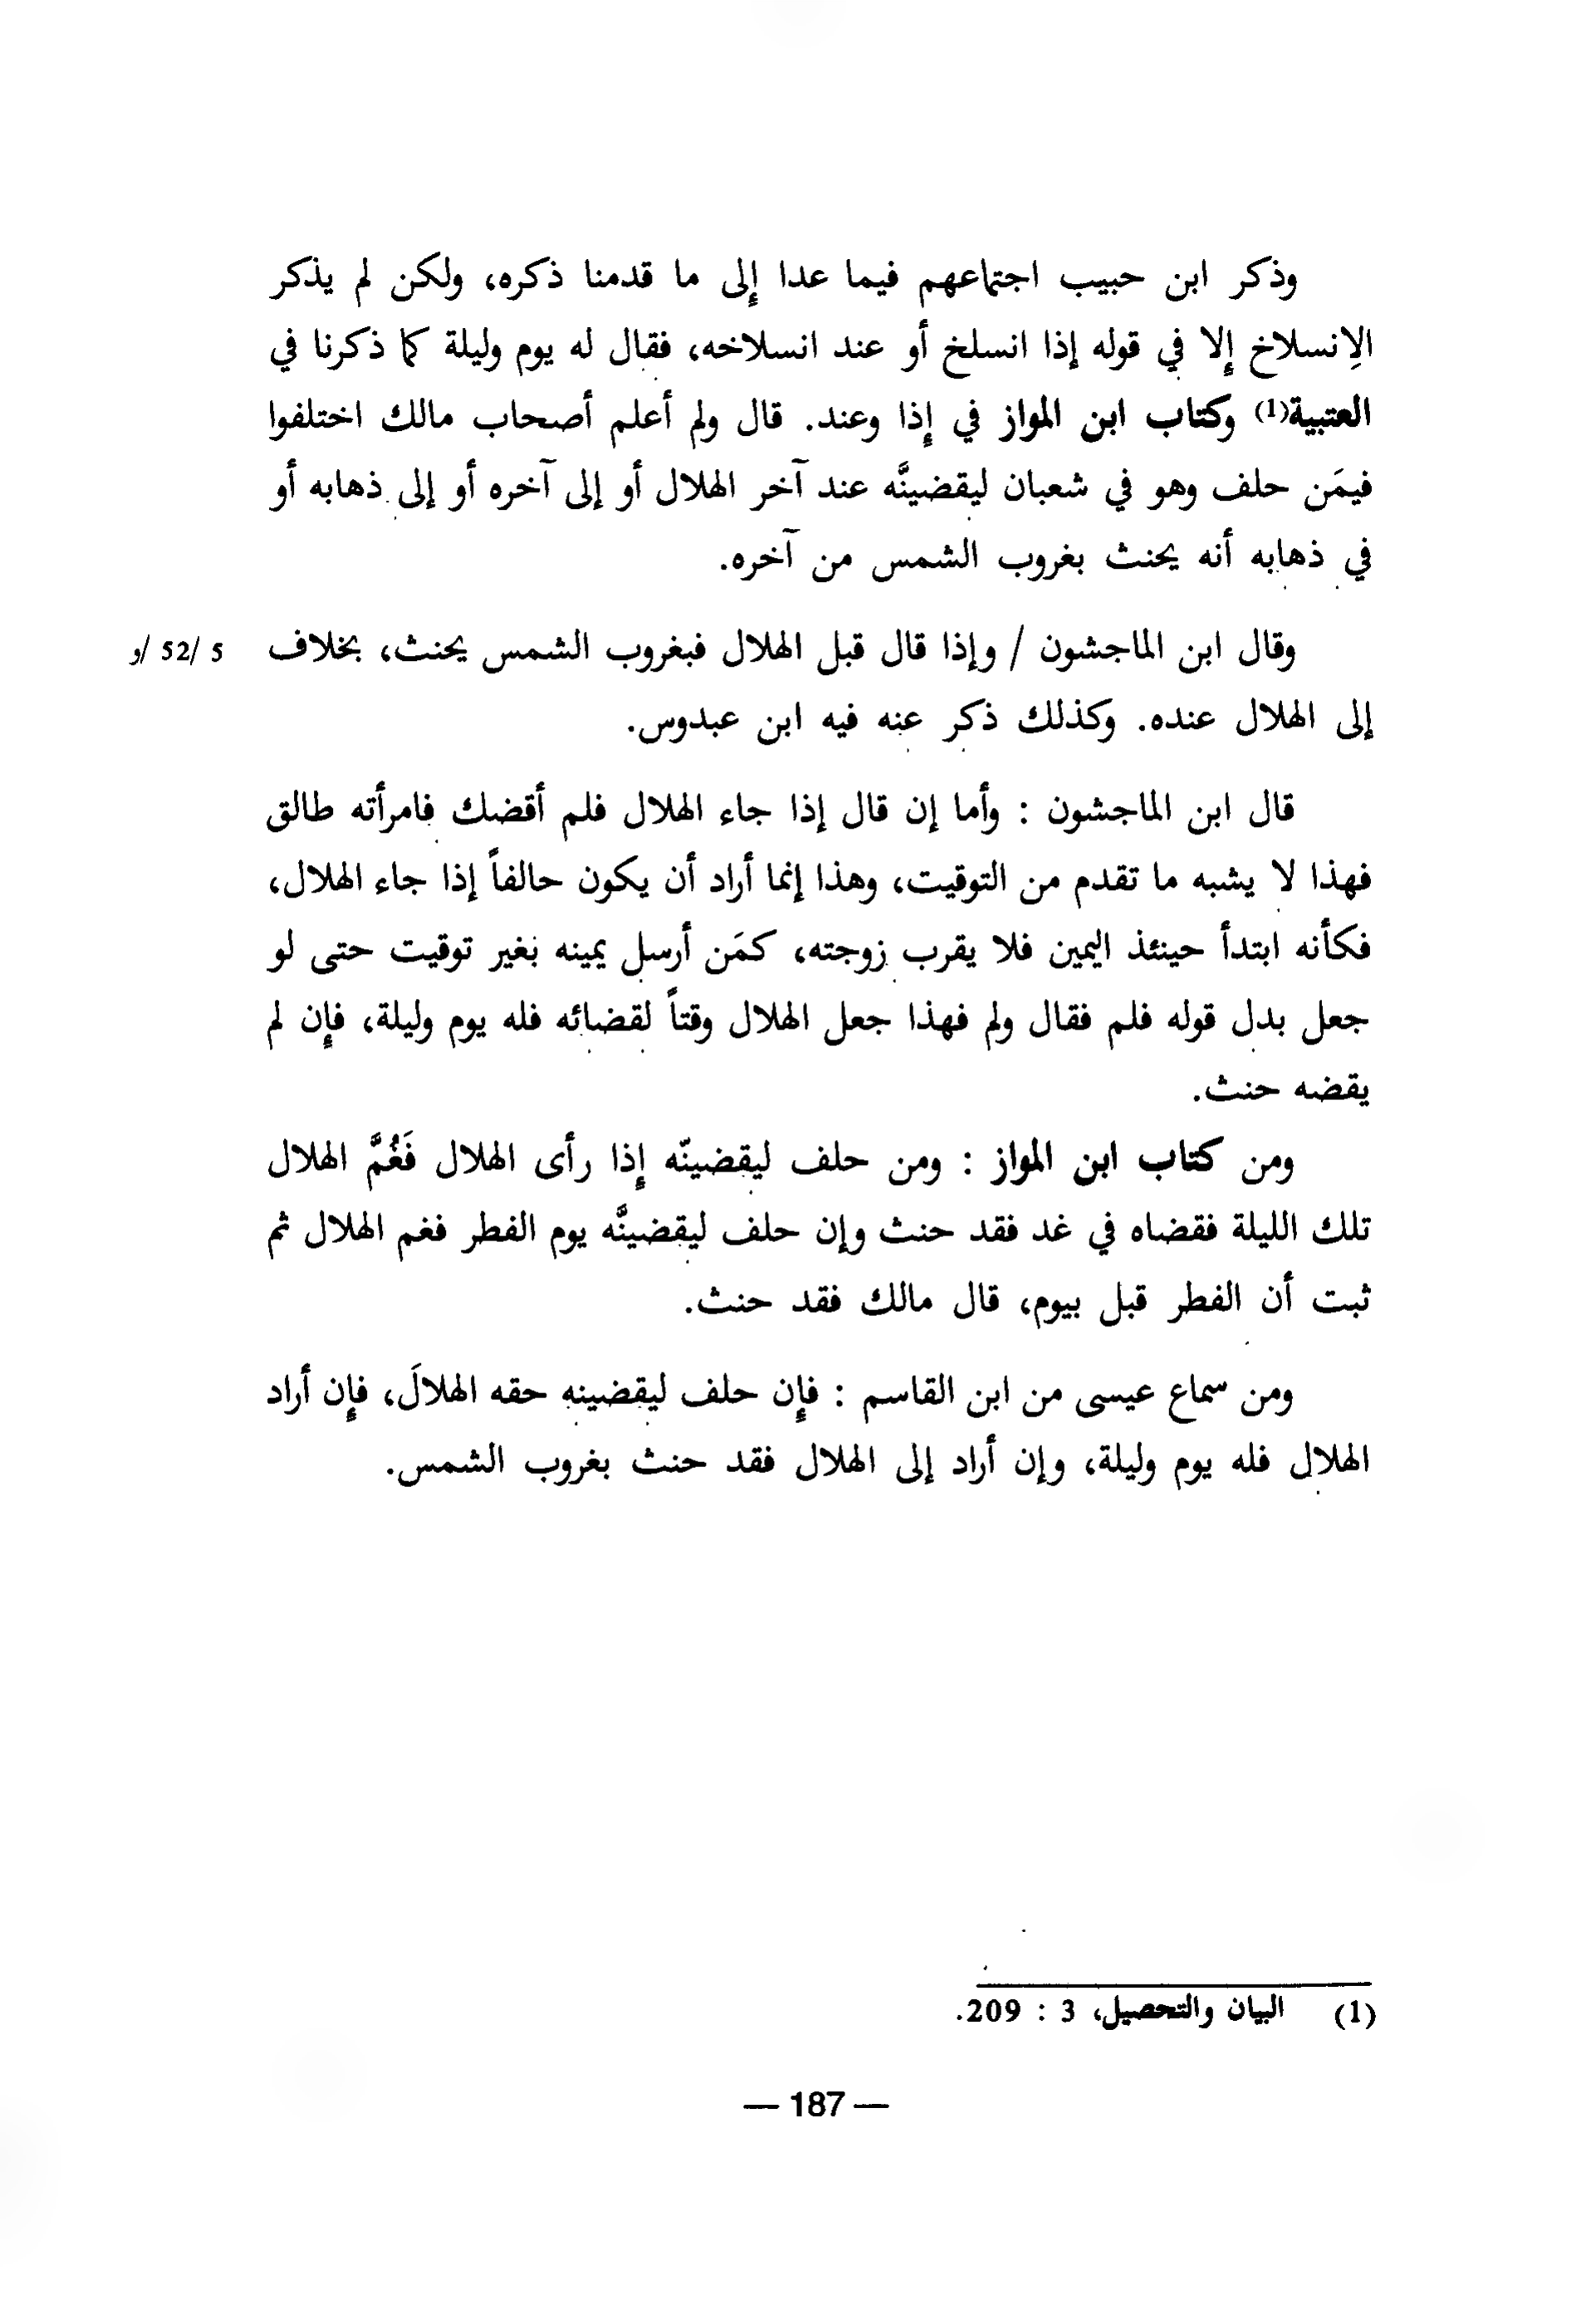 وذكر ابن حبيب اجتماعهم فيما عدا إلى ما قدمنا ذكره، ولكن لم يذكر
الإنسلاخ إلا في قوله إذا انسلخ أو عند انسلاخه، فقال له يوم وليلة كما ذكرنا في
العتبية(1) وكتاب ابن المواز في إذا وعند. قال ولم أعلم أصحاب مالك اختلفوا
فيمَن حلف وهو في شعبان ليقضينَّه عند آخر الهلال أو إلى آخره أو إلى ذهابه أو
في ذهابه أنه يحنث بغروب الشمس من آخره.
وقال ابن الماجشون / وإذا قال قبل الهلال فبغروب الشمس يحنث، بخلاف 5 /52 /و
إلى الهلال عنده. وكذلك ذكر عنه فيه ابن عبدوس.
قال ابن الماجشون : وأما إن قال إذا جاء الهلال فلم أقضك فامرأته طالق
فهذا لا يشبه ما تقدم من التوقيت، وهذا إنما أراد أن يكون حالفاً إذا جاء الهلال،
فكأنه ابتدأ حينئذ اليمين فلا يقرب زوجته، كمَن أرسل يمينه بغير توقيت حتى لو
جعل بدل قوله فلم فقال ولم فهذا جعل الهلال وقتاً لقضائه فله يوم وليلة، فإن لم
يقضه حنث.
ومن كتاب ابن المواز : ومن حلف ليقضينّه إذا رأى الهلال فَغُمَّ الهلال
تلك الليلة فقضاه في غد فقد حنث وإن حلف ليقضينَّه يوم الفطر فغم الهلال ثم
ثبت أن الفطر قبل بيوم، قال مالك فقد حنث.
ومن سماع عيسى من ابن القاسم : فإن حلف ليقضينه حقه الهلالَ، فإن أراد
الهلال فله يوم وليلة، وإن أراد إلى الهلال فقد حنث بغروب الشمس.
(1) البيان والتحصيل، 3 : 209.
— 187 —